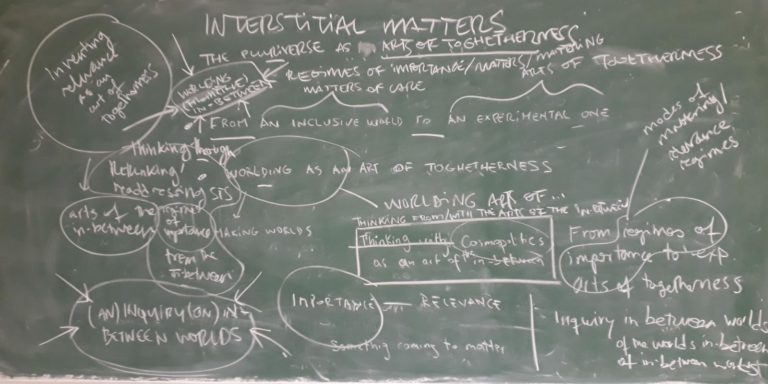 INTERSTITIAL MATTERS
THE PLURIVERSE AS ARTS OF TOGHETHERNESS
REGIMES OF IMPORTANCE/MATTERS/MATTERING
ARTS OF TOGETHERNESS
MATTERS OF CARE
Inventing
relevance
as an
art of
togetherness
WORLDING
IN-BETWEEN
FROM AN INCLUSIVE WORLD TO AN EXPERIMENTAL ONE
modes of
mattering/
relevance
regimes
Thinking through
Rethinking
readdressing STS
WORLDING AS AN ART OF TOGHETHERNESS
WORLDING ART OF...
THINKING FROM/WITH THE ARTS OF THE IN-BETWEEN
Thinking with Cosmopolitics
as an art of the in-between
arts of the
in-between
importance
from the
in-between
MAKING WORLDS
From regimes of
importance to exp.
arts of togetherness
(AN) INQUIRY (ON) IN-
BETWEEN WORLDS
IMPORTANCE — RELEVANCE
Something coming to matter
Inquiry in between worlds
of the worlds in-between
of in-between worlds